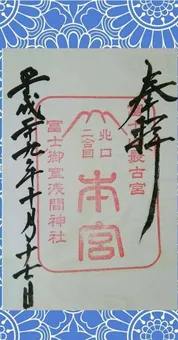 奉拝
最古宮
北口
二合目
本宮
冨士御室浅間神社
平成廿九年十月十七日